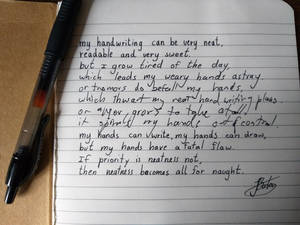 my handwriting can be very neat,
readable and very sweet.
but I grow tired of the day,
which leads my weary hands astray,
or tremors do befall my hands,
which thwart my neat handwriting plans.
or
it my hands of control
my hands can write, my hands can draw,
but my hands have a fatal flaw.
If priority is neatness not,
then neatness becomes all for naught.